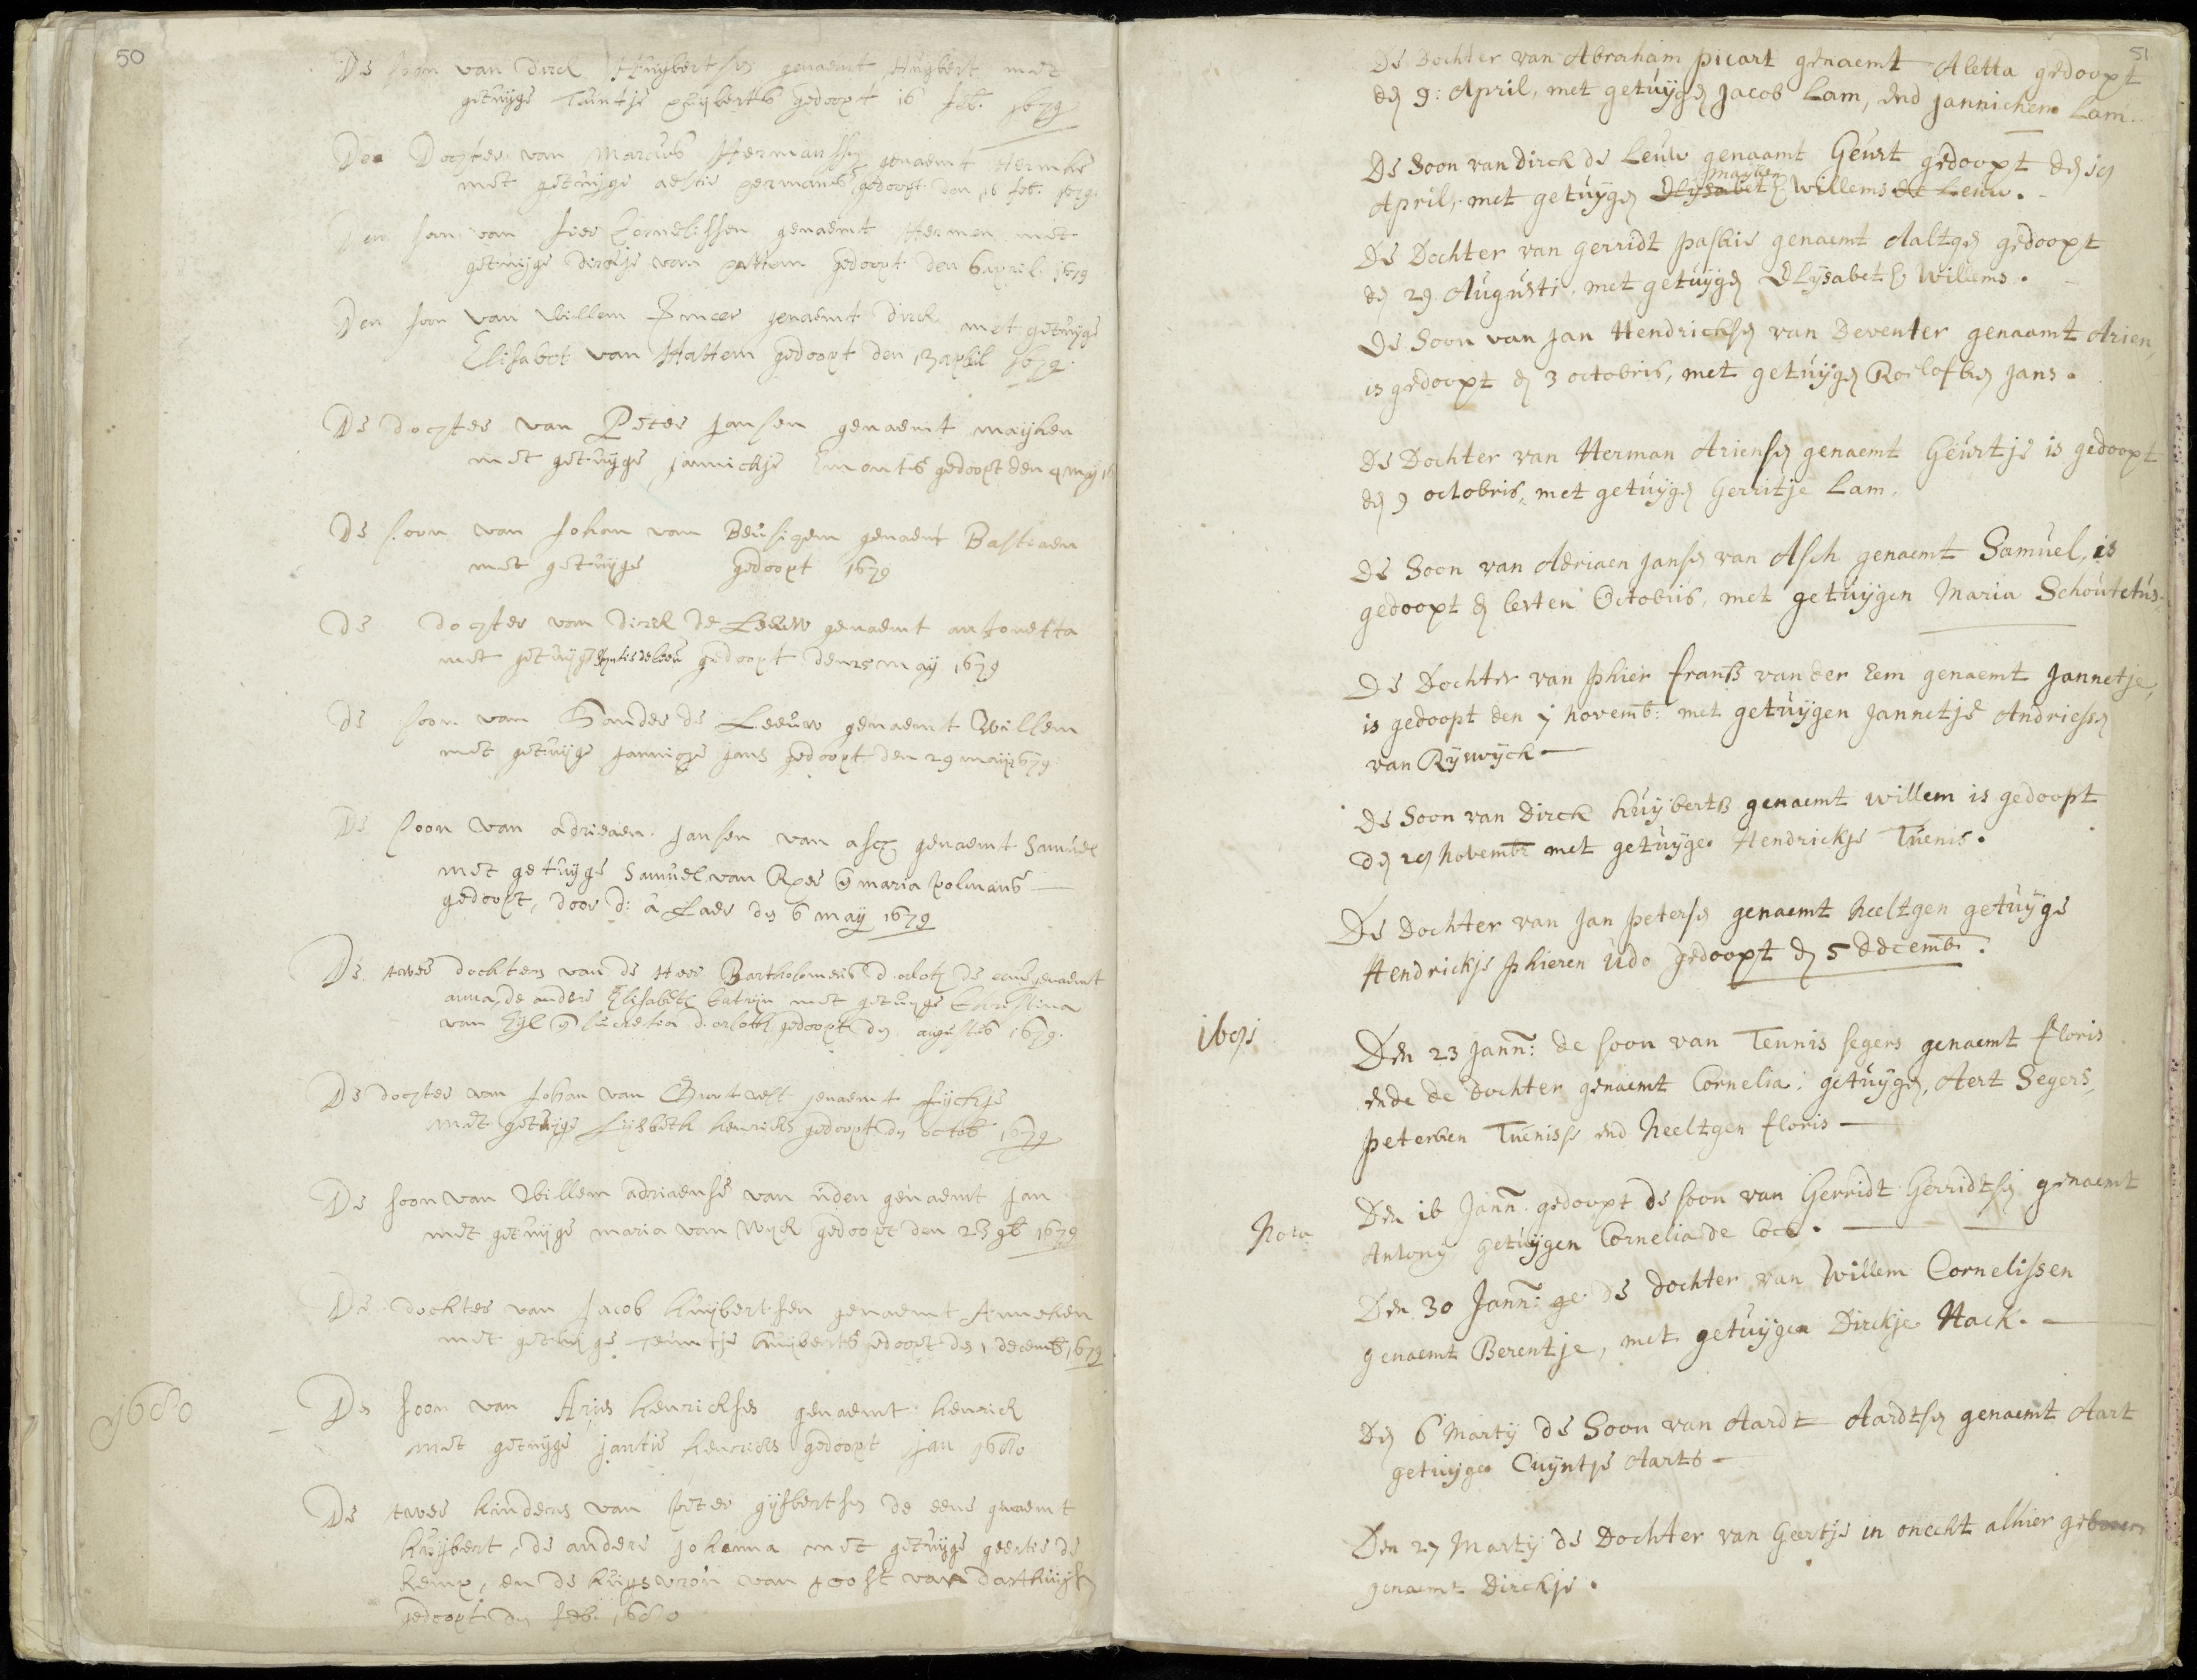 50
De soon van Dirck Huijbertsen genaemt Huijbert met
getuijge Teuntje Huijberts gedoopt 16 feb. 1679
De Dochter van Marcus Hermanssen genaemt Hermke
met getuijge aeltie hermans gedoopt den 16 feb. 1679.
Den son van Cornelissen genaemt Hermen met
getuijge dirckje van hattem gedoopt den 6 april 1679
Den soon van Willem genaemt dirck met getuijge
Elisabet van Hattem gedoopt den 13 april 1679
De dochter van Peter Jansen genaemt maijken
met getuijge jannickje Emonts gedoopt den 4 meij 16
De soon van Johan van Beusigem genaemt Bastiaen
met getuijge gedoopt 1679
De dochter van dirck de Leeuw genaemt antonetta
met getuijge de leeu gedoopt den 25 may 1679
De soon van Sander de Leeuw genaemt Willem
met getuijge Jannigje Jans gedoopt den 29 maij 1679
De soon van adriaen Jansen van asch genaemt Samuel
met getuijge Samuel van Rees en maria Holmans
gedoopt, door d: â Laer den 6 maij 1679
De twee dochters van de Heer Bartholomeus d. de eene genaemt
anna, de andere Elisabeth Catrijn met getuijge Christina
van Zijl en lucretia d. gedoopt den augustus 1679.
De dochter van Johan van genaemt fijchje
met getuijge Lijsbeth henricks gedoopt den octob 1679
De soon van Willem adriaense van uden genaemt Jan
met getuijge maria van Wijck gedoopt den 23 1679
De dochter van Jacob huijbertsen genaemt Anneken
met getuijge Teuntje huijberts gedoopt den 1 decemb 1679
1680
De soon van Arjen henricksen genaemt henrick
met getuijge jantie henricks gedoopt jan 1680
De twee kinders van peter gijsbertsen de eene genaemt
huijbert, de andere Johanna met getuijge geertie de
kemp, en de huijsvrou van joost van darthuijsen
gedoopt den feb. 1680
51
De Dochter van Abraham picart genaemt Aletta gedoopt
den 9: April, met getuijgen Jacob Lam, end Jannichen Lam.
De Soon van Dirck de Leuw genaamt Geurt gedoopt den 19
maijken
April, met getuijgen Elijsabeth Willems de Leuw.
De Dochter van gerridt paskie genaemt Aaltgen gedoopt
den 29. Augusti, met getuijgen Elijsabeth Willems.
De Soon van Jan Hendricksen van Deventer genaamt Arien,
is gedoopt den 3 octobris, met getuijgen Roelofken Jans.
De Dochter van Herman Ariensen genaemt Geurtje is gedoopt
den 9 octobris, met getuijgen Gerritje Lam.
De Soon van Adriaen Jansen van Asch genaemt Samuel, is
gedoopt den lesten Octobris, met getuijgen Maria Schoutetus.
De Dochter van Phier Franss van der Eem genaemt Jannetje,
is gedoopt den 7 novemb: met getuijgen Jannetje Andriessen
van Rijswijck
De Soon van Dirck Huijberts genaemt willem is gedoopt
den 29 novembr met getuijge Hendrickje Tuenis.
De Dochter van Jan Petersen genaemt Neeltgen getuijge
Hendrickje Phieren Udo gedoopt den 5 Decemb.
1691
Den 23 Jann: de soon van Teunis segers genaemt floris
ende de Dochter genaemt Cornelia: getuijgen, Aert Segers,
Peterken Tuenisse end Neeltgen floris
Nota
Den 16 Jann. gedoopt de soon van Gerridt Gerridtsen genaemt
Antony getuijgen Cornelia de Cock.
Den 30 Jann: ge. de dochter van Willem Cornelissen
genaemt Berentje, met getuijgen Dirckje Hack.
Den 6 Martij de Soon van Aardt Aardtsen genaemt Aart
getuijge Cuijntje Aarts
Den 27 Martij de Dochter van Geertje in onecht alhier geboren
genaemt Dirckje.